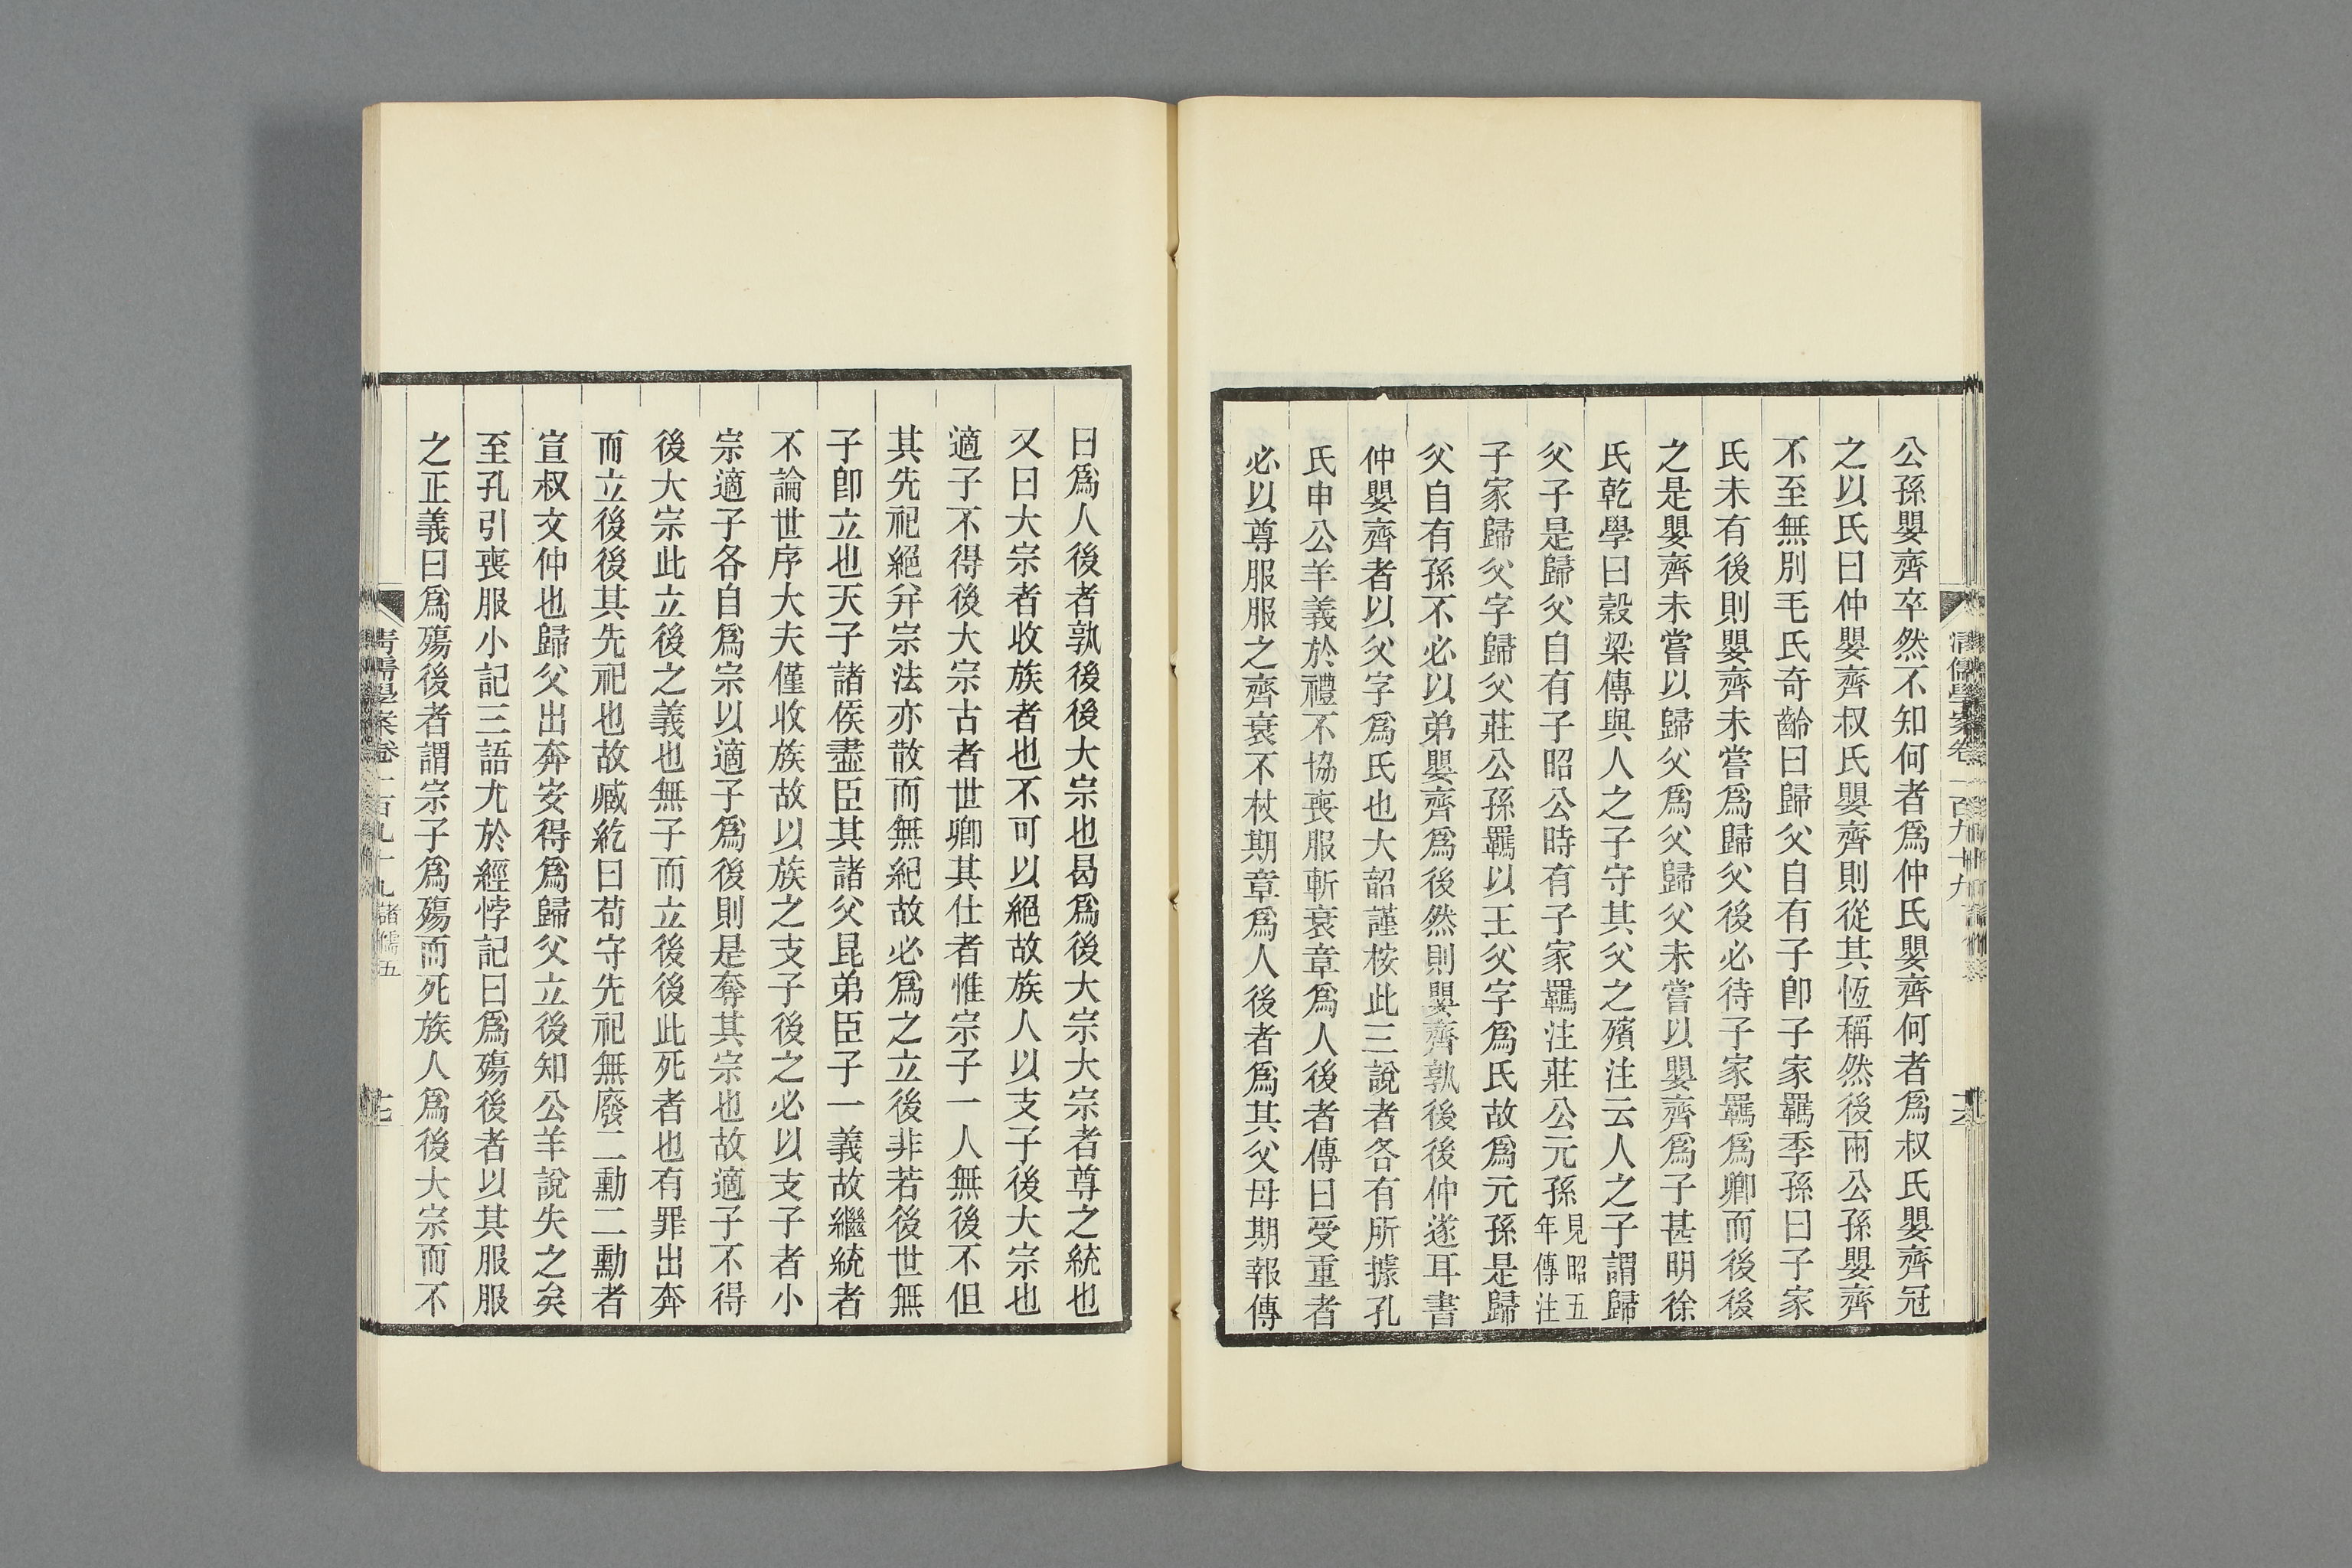 清儒學案卷一百九十九
公孫嬰齊卒然不知何者爲仲氏嬰齊何者爲叔氏嬰齊冠
之以氏曰仲嬰齊叔氏嬰齊則從其恆稱然後兩公孫嬰齊
不至無別毛氏奇齡曰歸父自有子卽子家羈季孫曰子家
氏未有後則嬰齊未嘗爲歸父後必待子家羈爲卿而後後
之是嬰齊未嘗以歸父爲父歸父未嘗以嬰齊爲子甚明徐
氏乾學曰榖梁傳與人之子守其父之殯注云人之子謂歸
父子是歸父自有子昭公時有子家羈注莊公元孫見昭五年傳注
子家歸父字歸父莊公孫羈以王父字爲氏故爲元孫是歸
父自有孫不必以弟嬰齊爲後然則嬰齊孰後後仲遂耳書
仲嬰齊者以父字爲氏也大韶謹桉此三說者各有所據孔
氏申公羊義於禮不協喪服斬衰章爲人後者傳曰受重者
必以尊服服之齊衰不杖期章爲人後者爲其父母期報傳
曰爲人後者孰後後大宗也曷爲後大宗大宗者尊之統也
又曰大宗者收族者也不可以絕故族人以支子後大宗也
適子不得後大宗古者世卿其仕者惟宗子一人無後不但
其先祀絕幷宗法亦散而無紀故必爲之立後非若後世無
子卽立也天子諸侯盡臣其諸父昆弟臣子一義故繼統者
不論世序大夫僅收族故以族之支子後之必以支子者小
宗適子各自爲宗以適子爲後則是奪其宗也故適子不得
後大宗此立後之義也無子而立後後此死者也有罪出奔
而立後後其先祀也故臧紇曰苟守先祀無廢二勳二勳者
宣叔文仲也歸父出奔安得爲歸父立後知公羊說失之矣
至孔引喪服小記三語尤於經悖記曰爲殤後者以其服服
之正義曰爲殤後者謂宗子爲殤而死族人爲後大宗而不
清儒學案卷一百九十九 諸儒五 十七